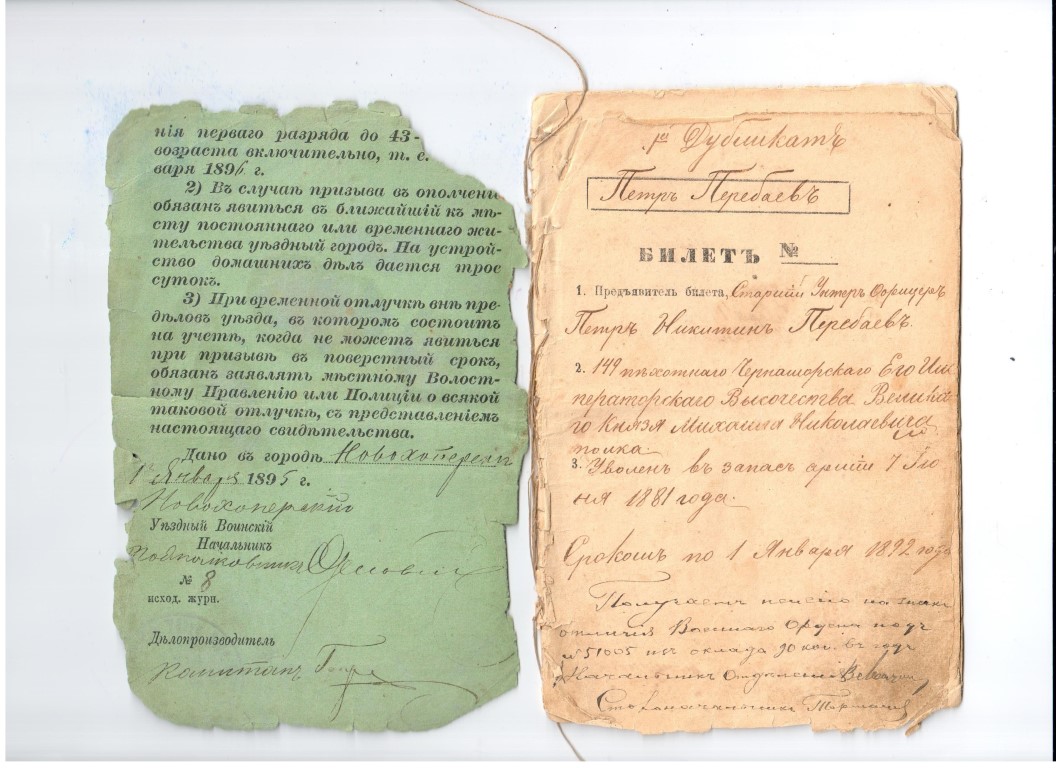 нія перваго разряда до 43-
возраста включительно, т. е.
варя 189 г.
2) Въ случаѣ призыва въ ополчені
обязан явиться въ ближайшій къ мѣ-
сту постояннаго или временнаго жи-
тельства уѣздный городъ. На устрой-
ство домашнихъ дѣлъ дается трое
сутокъ.
3) При временной отлучкѣ внѣ пре-
дѣловъ уѣзда, въ которомъ состоитъ
на учетѣ, когда не можетъ явиться
при призывѣ въ поверстный срокъ,
обязанъ заявлять мѣстному Волост-
ному Правленію или Полиціи о всякой
таковой отлучкѣ, съ представленіемъ
настоящаго свидѣтельства.
Дано въ городѣ Новохоперскѣ
1 Января 1895 г.
Новохоперскій
Уѣздный Воинскій
Начальникъ
Подполковникъ
№ 8
исход. журн.
Дѣлопроизводитель
Капитанъ
Дубликатъ
Петръ Перебаевъ
БИЛЕТЪ №
1. Предъявитель билета, Старшій Унтеръ Офицеръ
Петръ Никитинъ Перебаевъ.
2. 149 пѣхотнаго Черноморскаго Его Им
ператорскаго Высочества Велика
го Князя Михаила Николаевича
полка
3. Уволенъ въ запасъ арміи 7 Iю
ня 1881 года.
Срокомъ по 1 Января 1892 года
Получаетъ пенсію по знаку
отличія Военнаго Ордена подъ
№ 51005 изъ оклада 90 коп. въ годъ
Начальникъ Отдѣленія
Столоначальникъ